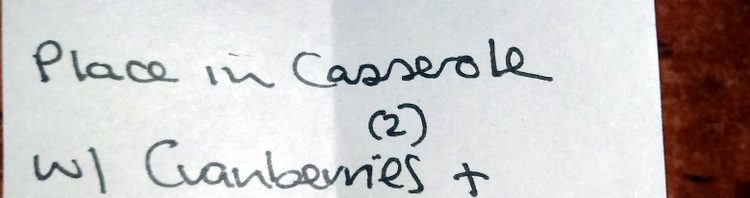 Place in Casserole
(2)
w/ Cranberries +